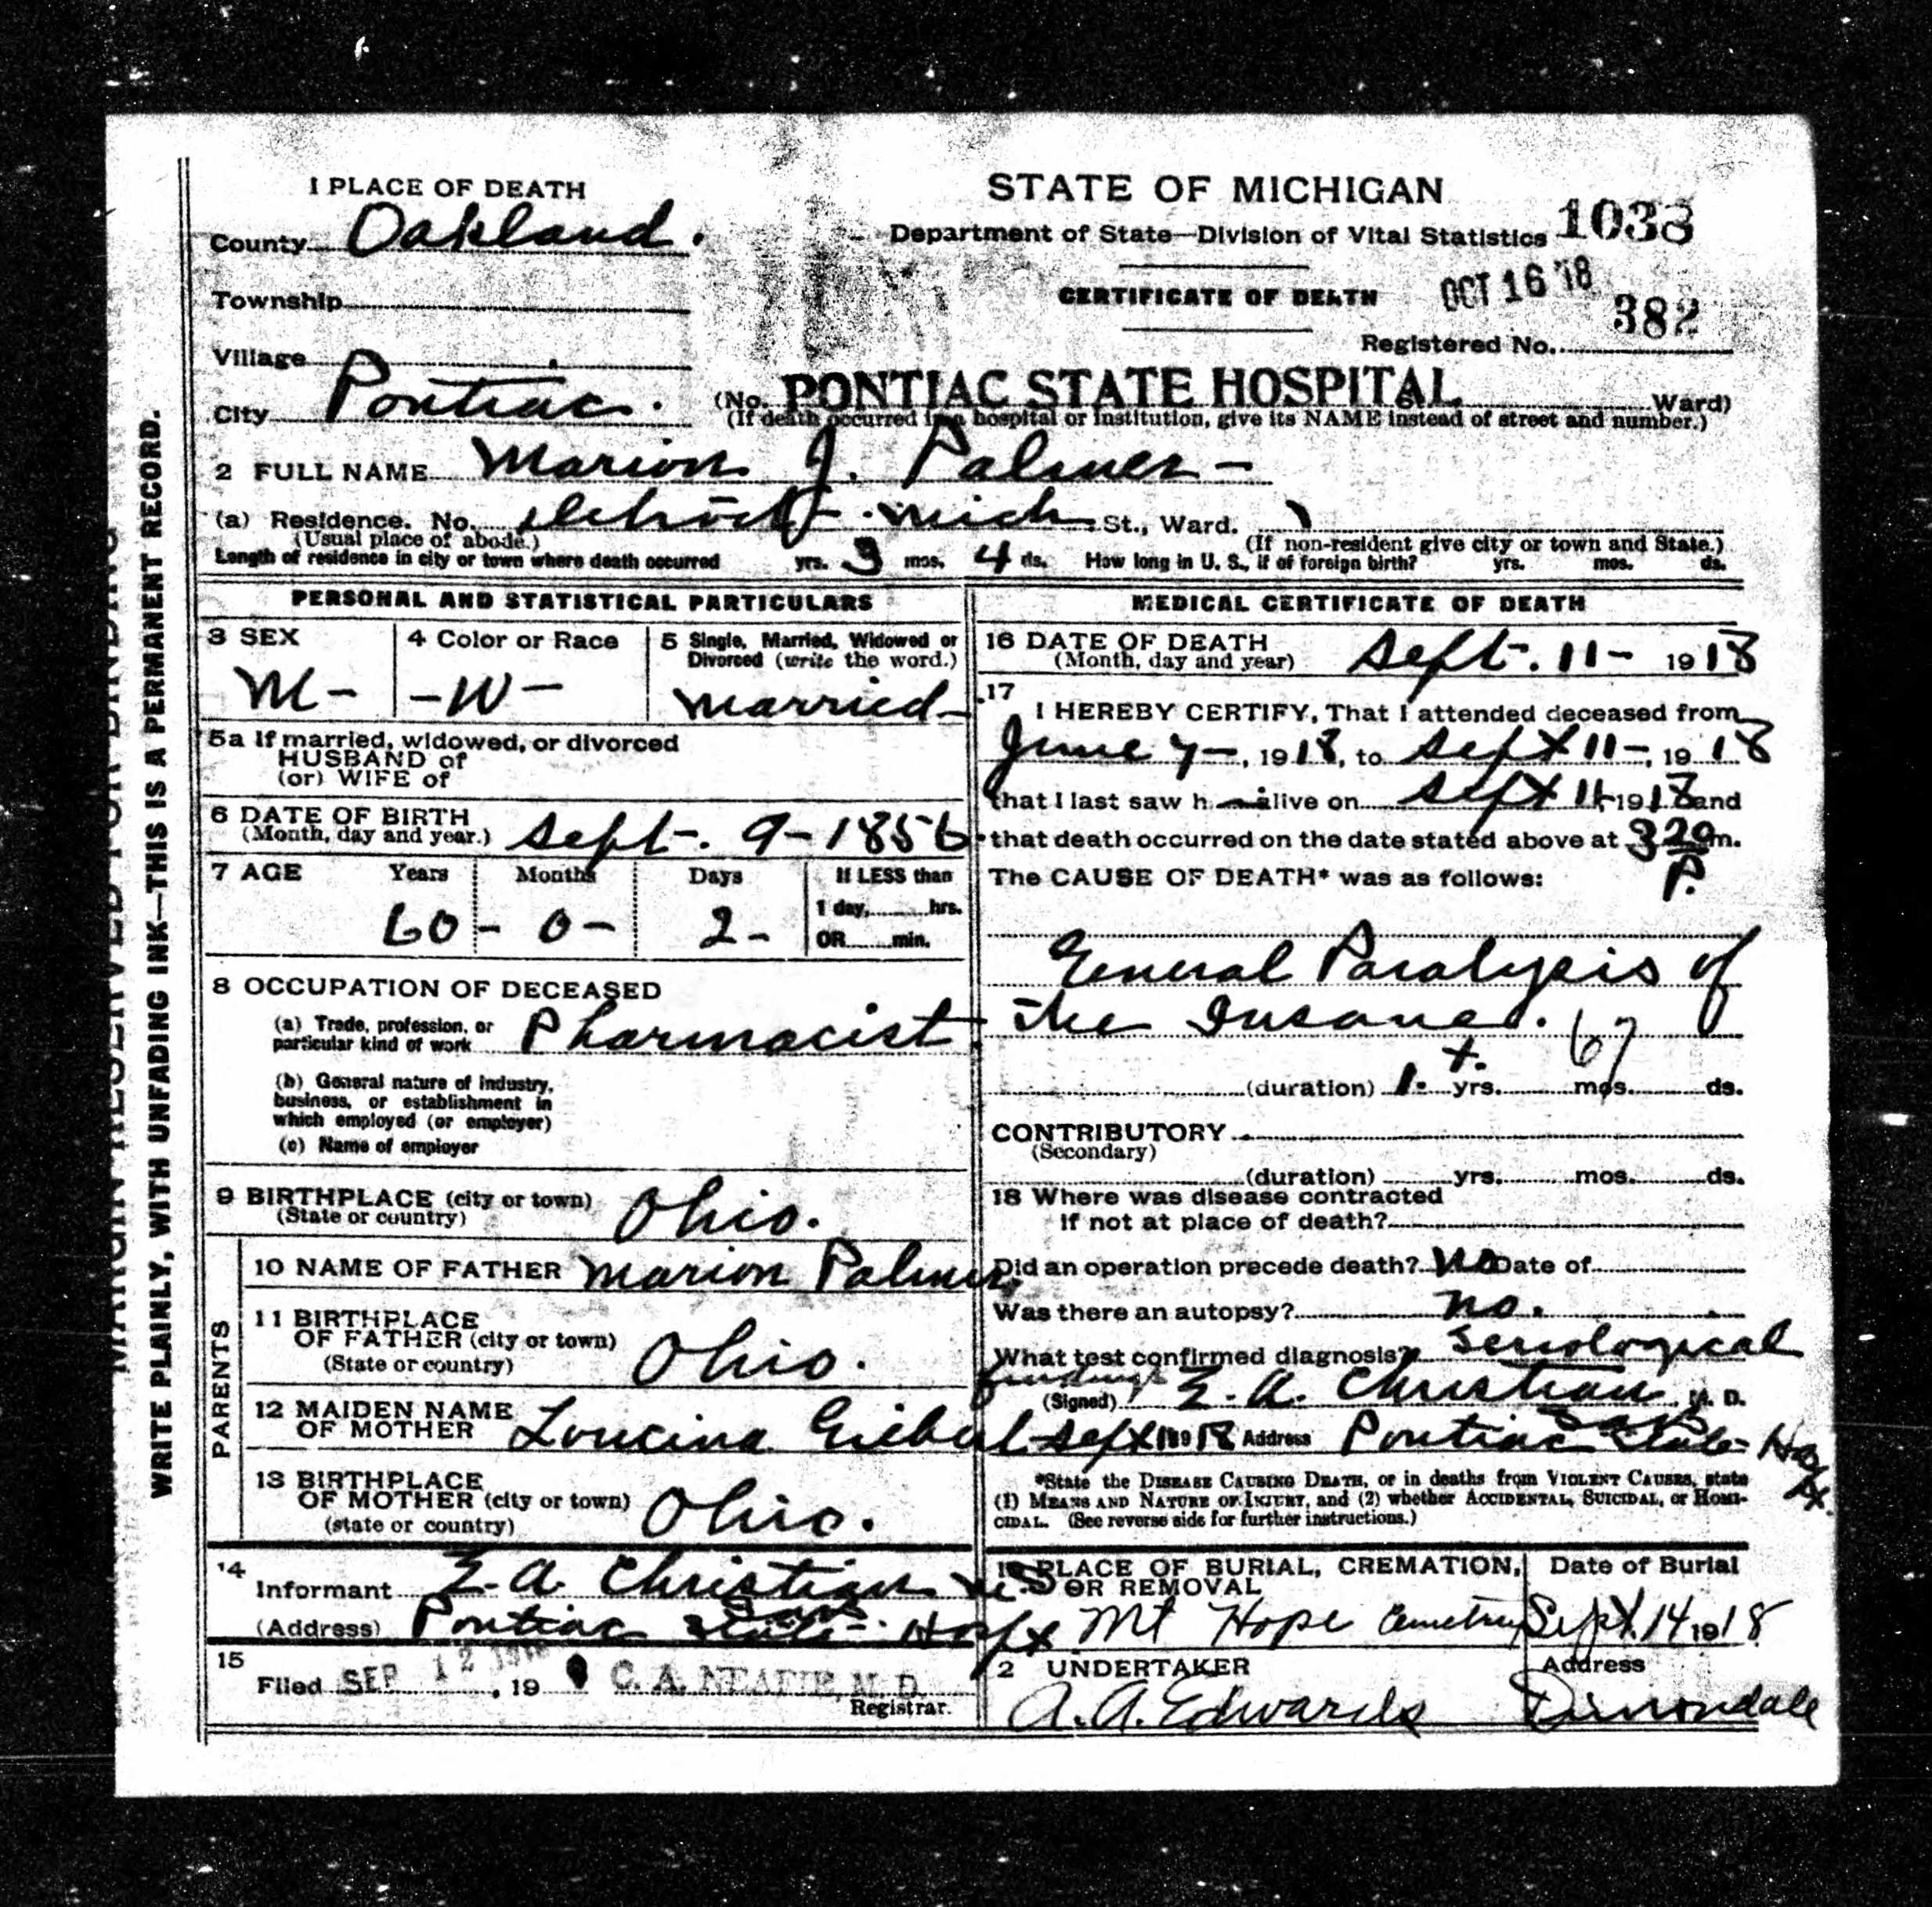 1 PLACE OF DEATH
County Oakland.
Township
Village
City Pontiac.
STATE OF MICHIGAN
Department of State—Division of Vital Statistics 1038
CERTIFICATE OF DEATH OCT 16 '18
Registered No. 382
(No. PONTIAC STATE HOSPITAL Ward)
(If death occurred in a hospital or institution, give its NAME instead of street and number.)
2 FULL NAME Marion J. Palmer -
(a) Residence. No. Detroit - Mich St., Ward.
(Usual place of abode.) (If non-resident give city or town and State.)
Length of residence in city or town where death occurred yrs. 3 mos. 4 ds. How long in U. S., if of foreign birth? yrs. mos. ds.
PERSONAL AND STATISTICAL PARTICULARS
3 SEX M-
4 Color or Race -W-
5 Single, Married, Widowed or
Divorced (write the word.)
Married-
5a If married, widowed, or divorced
HUSBAND of
(or) WIFE of
6 DATE OF BIRTH
(Month, day and year.) Sept-. 9-1856
7 AGE Years Months Days If LESS than
60- 0- 2- 1 day, hrs.
OR min.
8 OCCUPATION OF DECEASED
(a) Trade, profession, or
particular kind of work Pharmacist.
(b) General nature of industry,
business, or establishment in
which employed (or employer)
(c) Name of employer
9 BIRTHPLACE (city or town)
(State or country) Ohio.
PARENTS
10 NAME OF FATHER Marion Palmer.
11 BIRTHPLACE
OF FATHER (city or town)
(State or country) Ohio.
12 MAIDEN NAME
OF MOTHER Loucina
13 BIRTHPLACE
OF MOTHER (city or town)
(state or country) Ohio.
14
Informant E. A. Christian
(Address) Pontiac State Hospt
15
Filed SEP 12 1918, 19 C. A. NEAFIE, M. D.
Registrar.
MEDICAL CERTIFICATE OF DEATH
16 DATE OF DEATH
(Month, day and year) Sept-. 11- 1918
17
I HEREBY CERTIFY, That I attended deceased from
June 7-, 1918, to Sept 11-, 1918
that I last saw h alive on Sept 11-1918 and
that death occurred on the date stated above at 3 20 m.
P.
The CAUSE OF DEATH* was as follows:
General Paralysis of
The Insane. 67
(duration) 1. + yrs. mos. ds.
CONTRIBUTORY
(Secondary)
(duration) yrs. mos. ds.
18 Where was disease contracted
if not at place of death?
Did an operation precede death? No Date of
Was there an autopsy? no.
What test confirmed diagnosis? Seriological
findings
(Signed) E. A. Christian M. D.
Sept 1918 Address Pontiac State Hospt.
*State the DISEASE CAUSING DEATH, or in deaths from VIOLENT CAUSES, state
(1) MEANS AND NATURE OF INJURY, and (2) whether ACCIDENTAL, SUICIDAL, or HOMI-
CIDAL. (See reverse side for further instructions.)
19 PLACE OF BURIAL, CREMATION,
OR REMOVAL
Mt Hope Cemetery
Date of Burial
Sept. 14 1918
2 UNDERTAKER
A. A. Edwards
Address
Dimondale
WRITE PLAINLY, WITH UNFADING INK—THIS IS A PERMANENT RECORD.
MARGIN RESERVED FOR BINDING